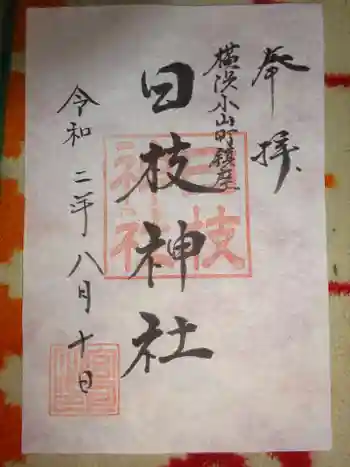 奉拝
横浜小山町鎮座
日枝神社
令和二年八月十日
日枝
神社